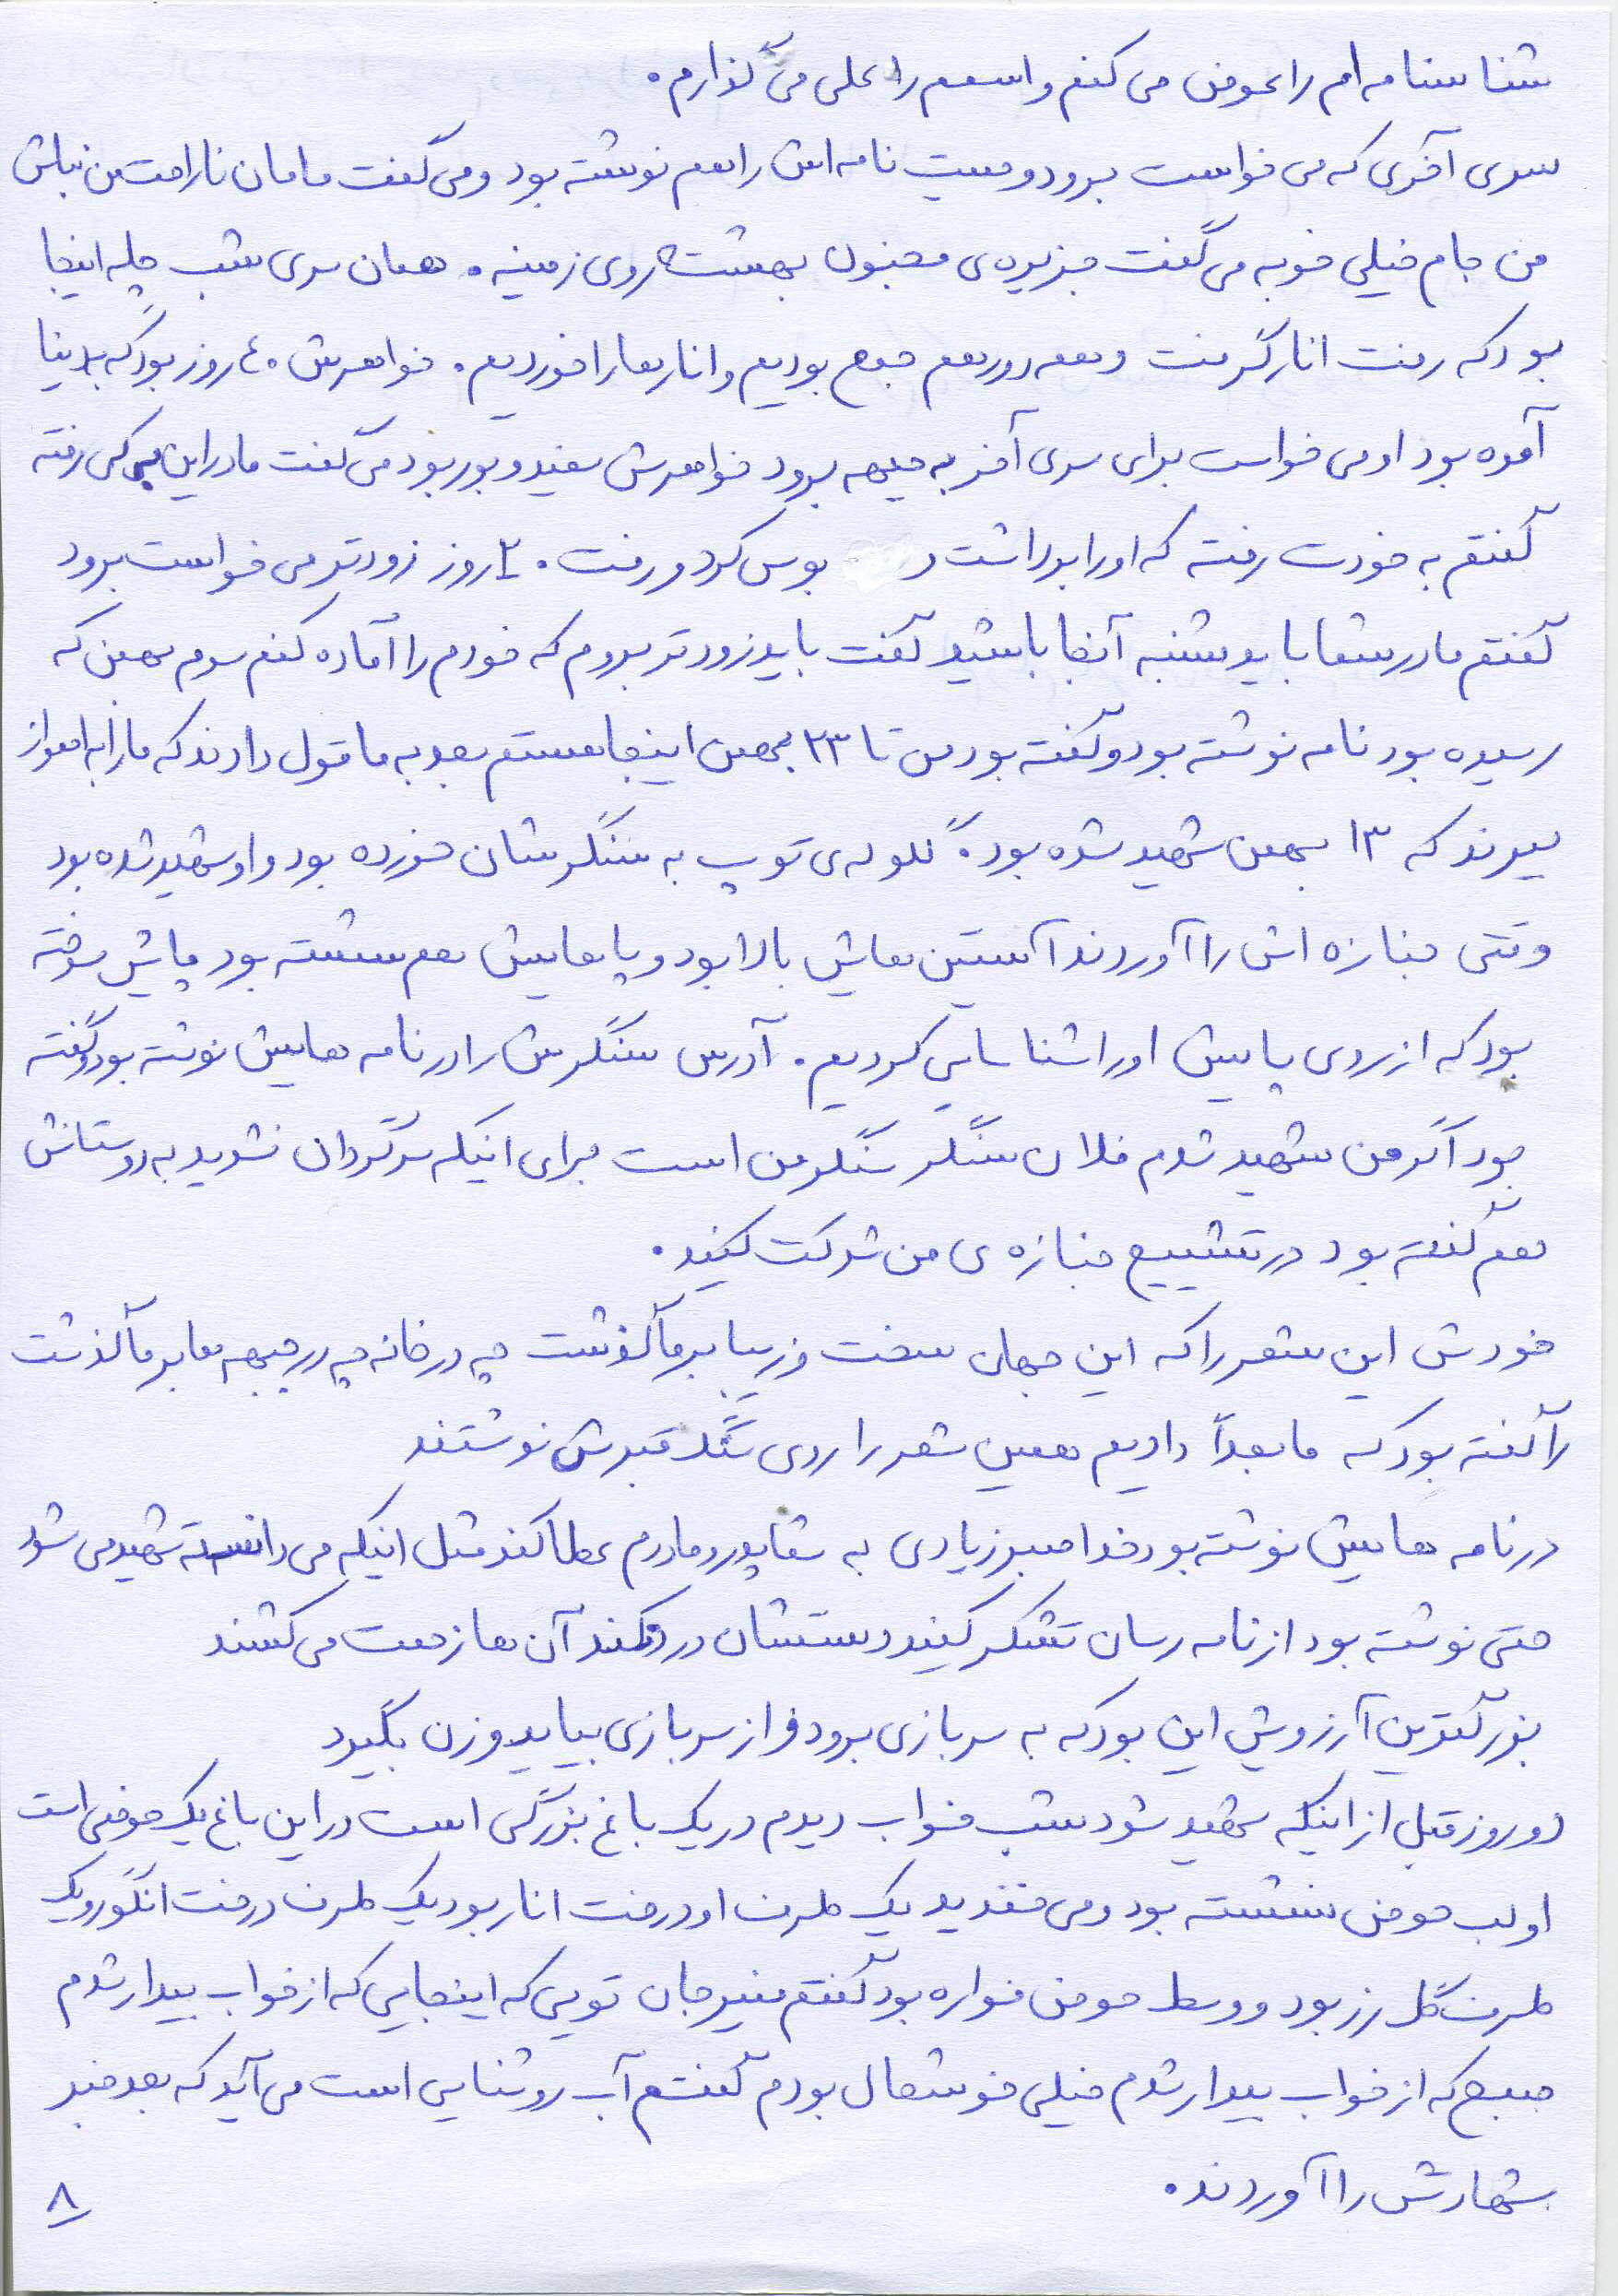 شناسنامه ام را عوض می کنم و اسمم را علی می گذارم.
سری آخری که می خواست برود وصیت نامه اش را هم نوشته بود و می گفت مامان ناراحت من نباش
من جام خیلی خوبه می گفت جزیره ی مجنون بهشت روی زمینه. همان سری شب چله اینجا
بود که رفت انار گرفت و همه دور هم جمع بودیم و انارها را خوردیم. خواهرش ۴۰ روز بود که بدنیا
آمده بود او می خواست برای سری آخر به جبهه برود خواهرش سفید و بور بود می گفت مادر این به کی رفته
گفتم به خودت رفته که او را برداشت و بوس کرد و رفت. ۲ روز زودتر می خواست برود
گفتم مادر شما باید شنبه آنجا باشید گفت باید زودتر بروم که خودم را آماده کنم سوم بهمن که
رسیده بود نامه نوشته بود و گفته بود من تا ۲۳ بهمن اینجا هستم بعد به ما قول دادند که ما را به اهواز
ببرند که ۱۳ بهمن شهید شده بود. گلوله ی توپ به سنگرشان خورده بود و او شهید شده بود
وقتی جنازه اش را آوردند آستین هایش بالا بود و پاهایش هم شسته بود پایش سوخته
بود که از روی پایش او را شناسایی کردیم. آدرس سنگرش را در نامه هایش نوشته بود و گفته
بود اگر من شهید شدم فلان سنگر سنگر من است برای اینکه سرگردان نشدید به دوستانش
هم گفته بود در تشییع جنازه ی من شرکت کنید.
خودش این شعر را که این جهان سخت و زیبا بر ما گذشت چه در خانه چه در جبهه ها بر ما گذشت
را گفته بود که ما بعداً دادیم همین شعر را روی سنگ قبرش نوشتند
در نامه هایش نوشته بود خدا صبر زیادی به شما پدر و مادرم عطا کند مثل اینکه می دانسته شهید می شود
حتی نوشته بود از نامه رسان تشکر کنید دستشان درد نکند آن ها زحمت می کشند
بزرگترین آرزویش این بود که به سربازی برود و از سربازی بیاید و زن بگیرد
دو روز قبل از اینکه شهید شود شب خواب دیدم در یک باغ بزرگی است در این باغ یک حوضی است
او لب حوض نشسته بود و می خندید یک طرف او درخت انار بود یک طرف درخت انگور و یک
طرف گل رز بود و وسط حوض فواره بود گفتم منیر جان تویی که اینجایی که از خواب بیدار شدم
صبح که از خواب بیدار شدم خیلی خوشحال بودم گفتم آب روشنایی است می آید که بعد خبر
شهادتش را آوردند.
۸